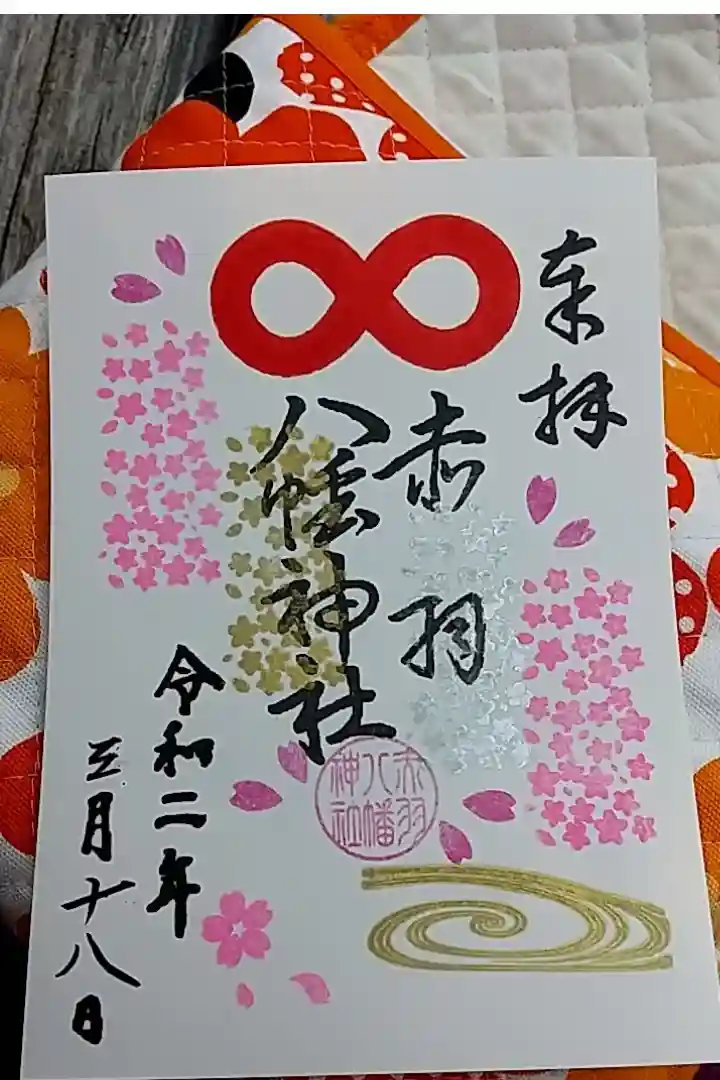 奉拝
赤羽
八幡神社
令和二年
三月十八日
赤羽
八幡
神社